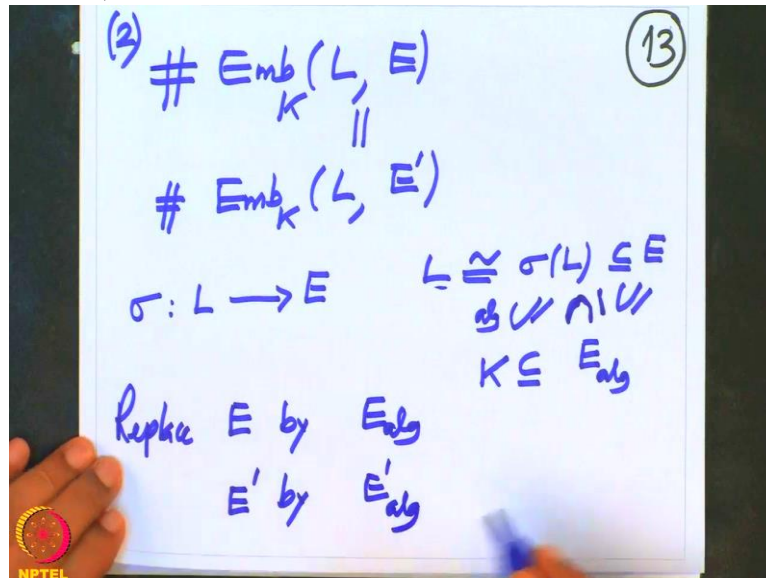 (2) # Emb_K (L, E) (13)
||
# Emb_K (L, E')
σ: L → E L ≅ σ(L) ⊆ E
alg ∪| ∩| ∪|
K ⊆ E_alg
Replace E by E_alg
E' by E'_alg
NPTEL